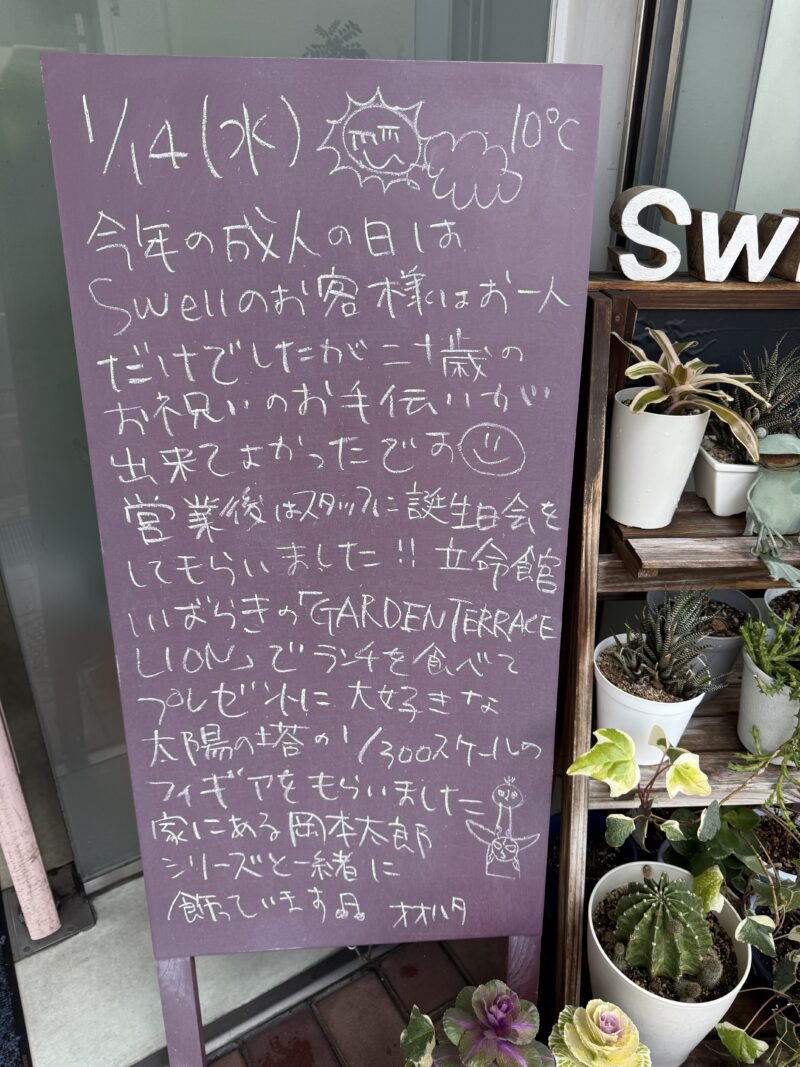 1/14(水) 10℃
今年の成人の日は
Swellのお客様はお一人
だけでしたが二十歳の
お祝いのお手伝いが
出来てよかったです
営業後はスタッフに誕生日会を
してもらいました!! 立命館
いばらきの「GARDEN TERRACE
LION」でランチを食べて
プレゼントに大好きな
太陽の塔の1/300スケールの
フィギアをもらいました
家にある岡本太郎
シリーズと一緒に
飾っています♫ オオハタ
Sw